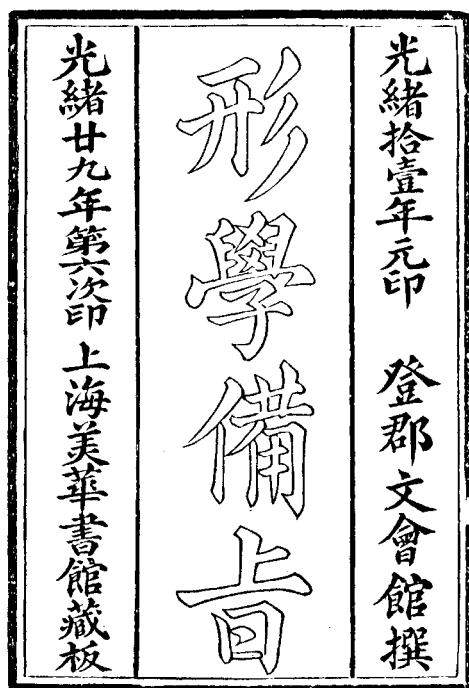 光緒拾壹年元印 登郡文會館撰
形學備㫖
光緒廿九年第六次印 上海美華書館藏板